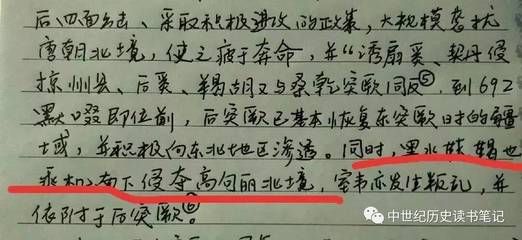 后,四面出击、采取积极进攻的政策,大规模袭扰
唐朝北境,使之疲于奔命,并“诱扇奚、契丹侵
掠州县、后奚、羯胡又与桑乾突厥同反⑤.到692
默啜即位前,后突厥已基本恢复东突厥旧时的疆
域,并积极向东北地区渗透。同时,黑水靺鞨也
乘机南下侵夺高句丽北境,室韦亦发生叛乱,并
依附于后突厥⑥
中世纪历史读书笔记